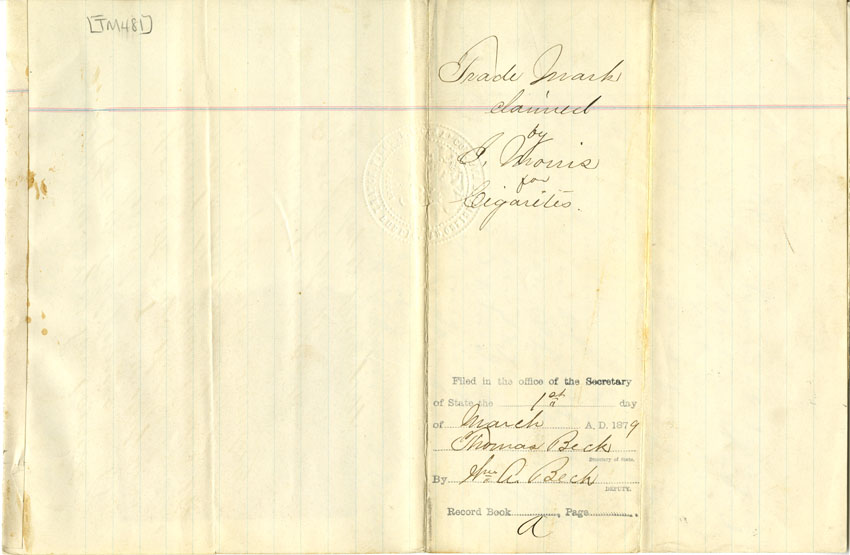 [TM481]
Trade Mark
claimed
by
I. Morris
for
Cigarites.
Filed in the office of the Secretary
of State the 1st day
of March A. D. 1879
Thomas Beck
Secretary of State.
By Wm A. Beck
DEPUTY.
Record Book, Page
A